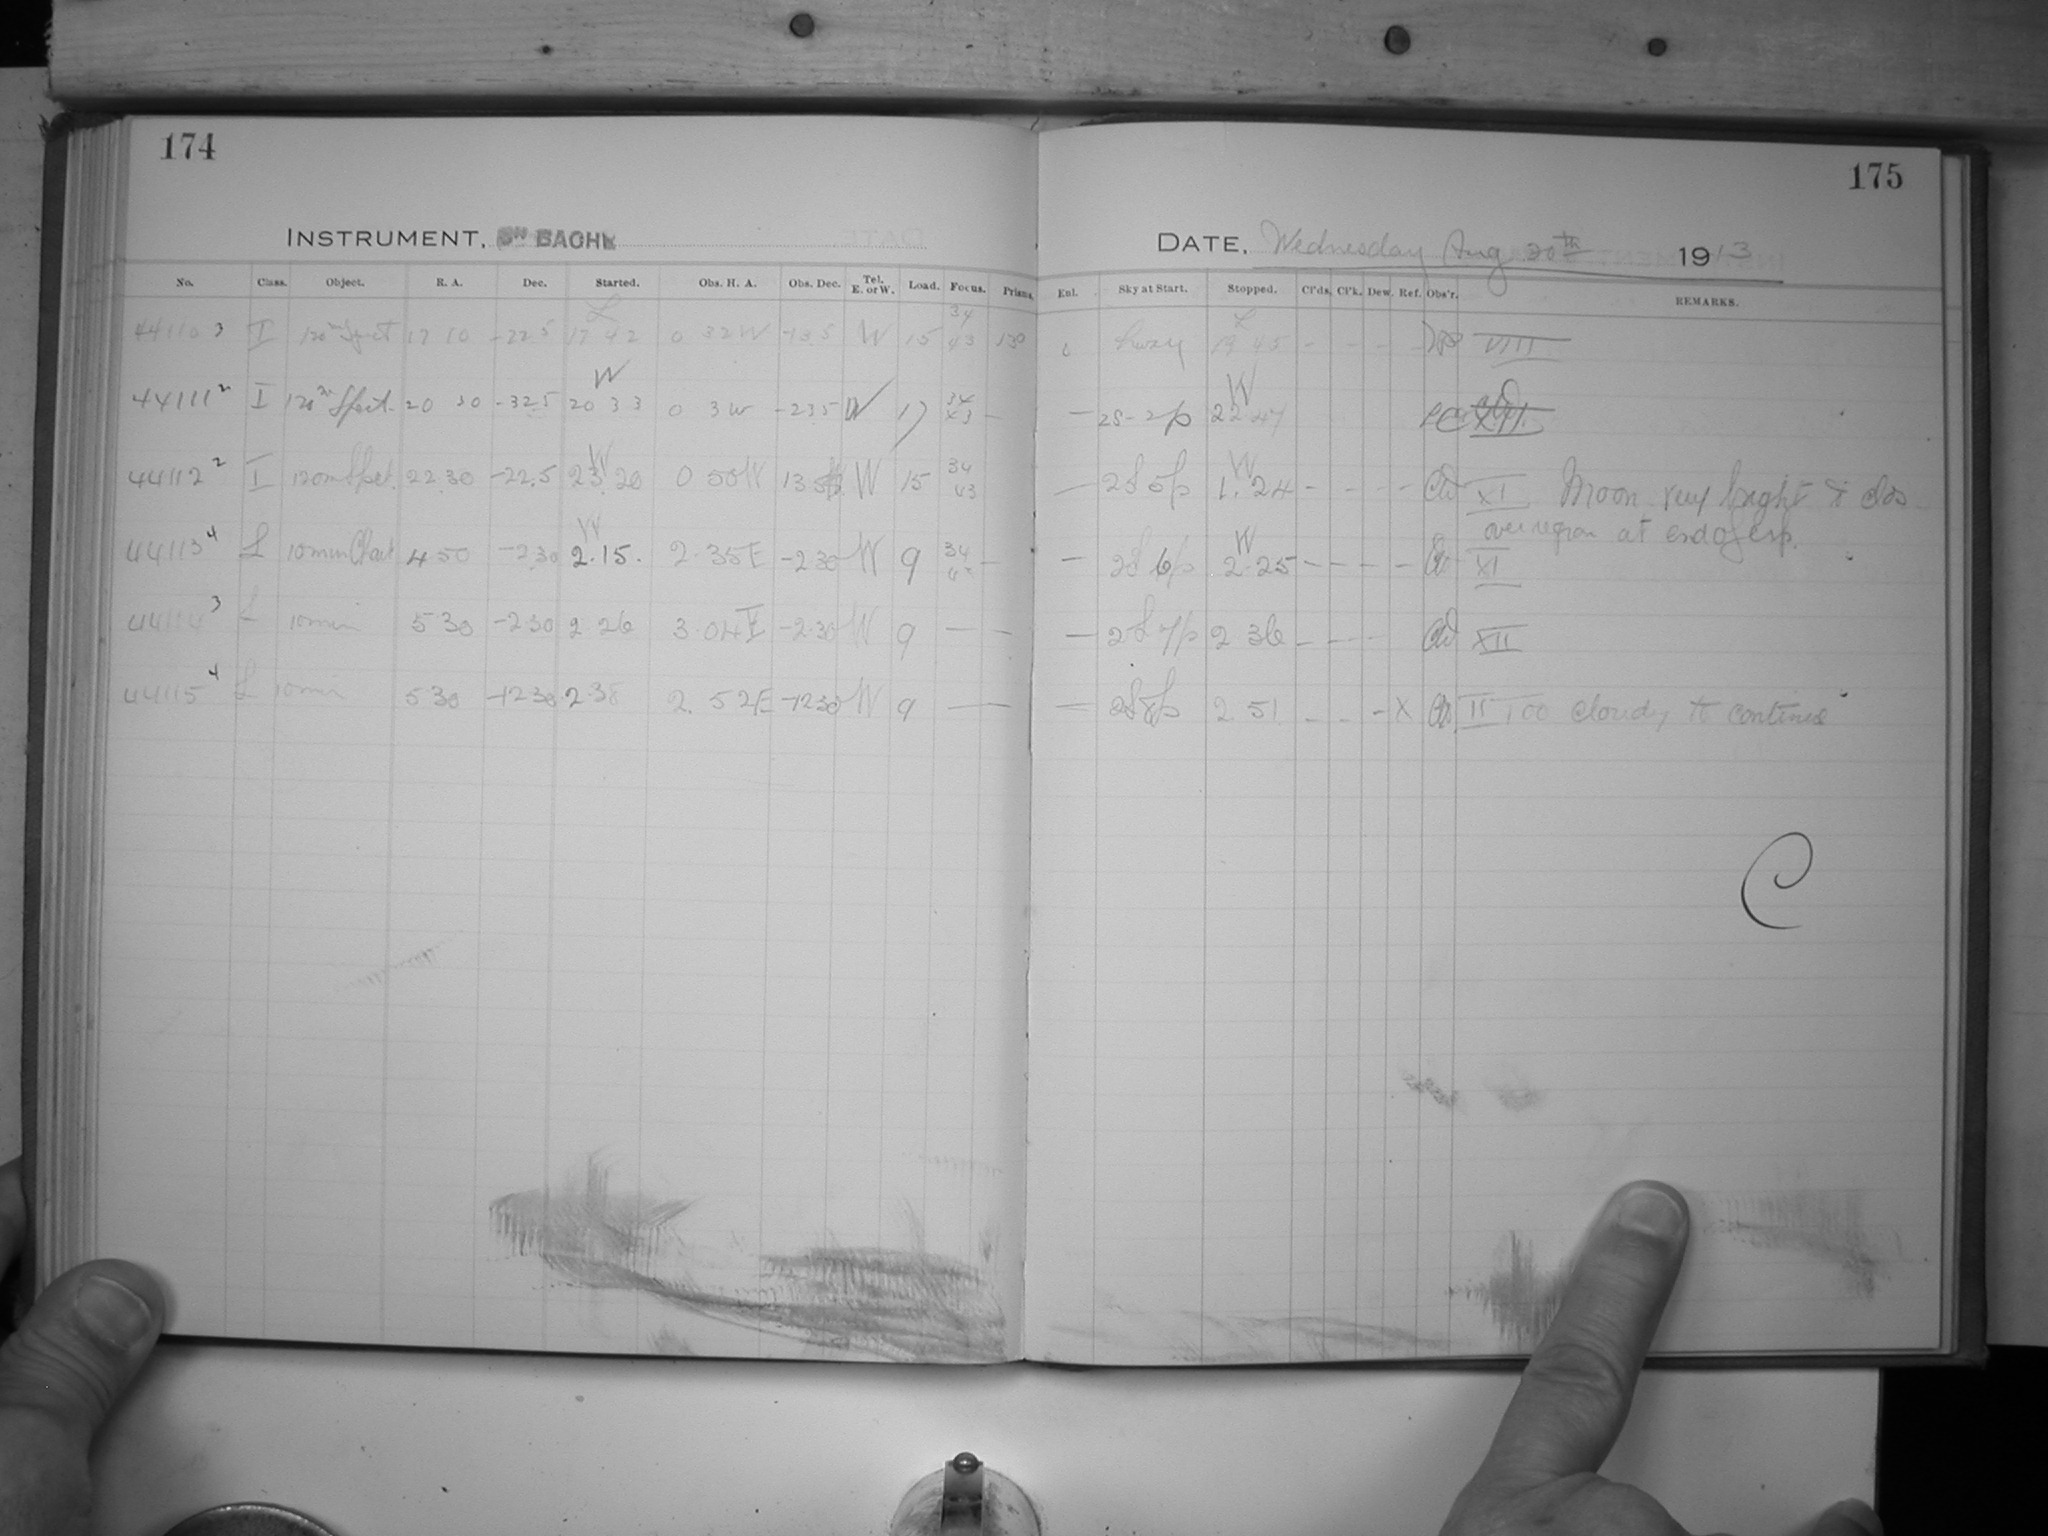 174
175
INSTRUMENT, BACHE
DATE, Wednesday Aug 20th 1913
No. Class. Object. R. A. Dec. Started. Obs. H. A. Obs. Dec. Tel. E. or W. Load. Focus. Prisms.
Enl. Sky at Start. Stopped. Cl'ds. Cl'k. Dew. Ref. Obs'r. REMARKS.
44110 3 I 120m Spect 17 10 -22.5 17 42 0 32 W W 15 34 43 130 hazy 19 45 - - - - VIII
44111 2 I 120m Spect. 20 30 -32.5 W 20 33 0 3 W -23.5 W 17 34 43 - - 2S-2p W 22 47
44112 2 I 120m Spect. 22 30 -22.5 W 23.20 0 50 W W 15 34 43 - 2S 5p W 1.24 - - - - XI Moon very bright & clds
over region at end of exp.
44113 4 L 10min Chart 4 50 -2 30 W 2.15. 2.35 E -2 30 W 9 34 - - 2S 6p W 2.25 - - - - XI
44114 3 L 10min 5 30 -2 30 2 26 3.04 E -2.30 W 9 - - - 2S 7p 2 36 - - - - XII
44115 4 L 10min 5 30 -12 30 2 38 2. 52 E -12 30 W 9 - - - 2S 8p 2 51 - - - X II Too cloudy to continue
C